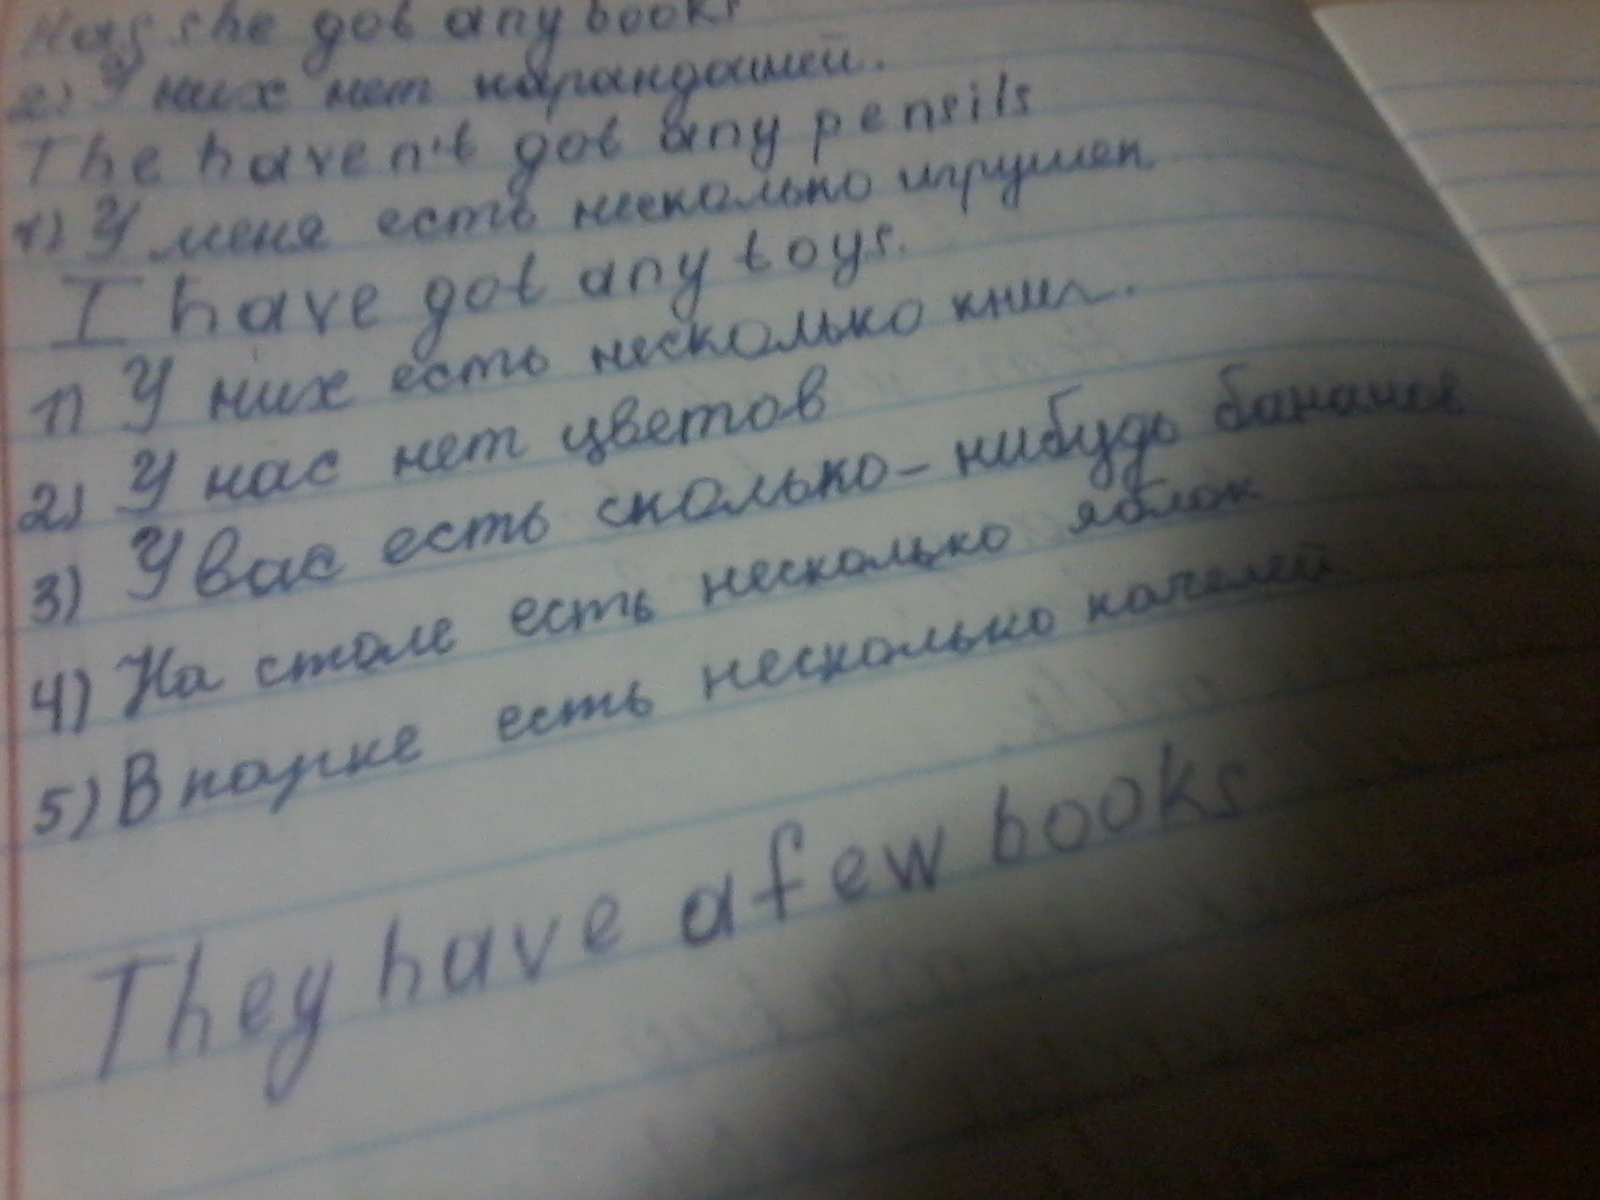 Has she got any books
2) У них нет карандашей.
The haven't got any pensils
1) У меня есть несколько игрушек
I have got any toys.
1) У них есть несколько книг.
2) У нас нет цветов
3) У вас есть сколько-нибудь бананов
4) На столе есть несколько яблок
5) В парке есть несколько качелей
They have a few books